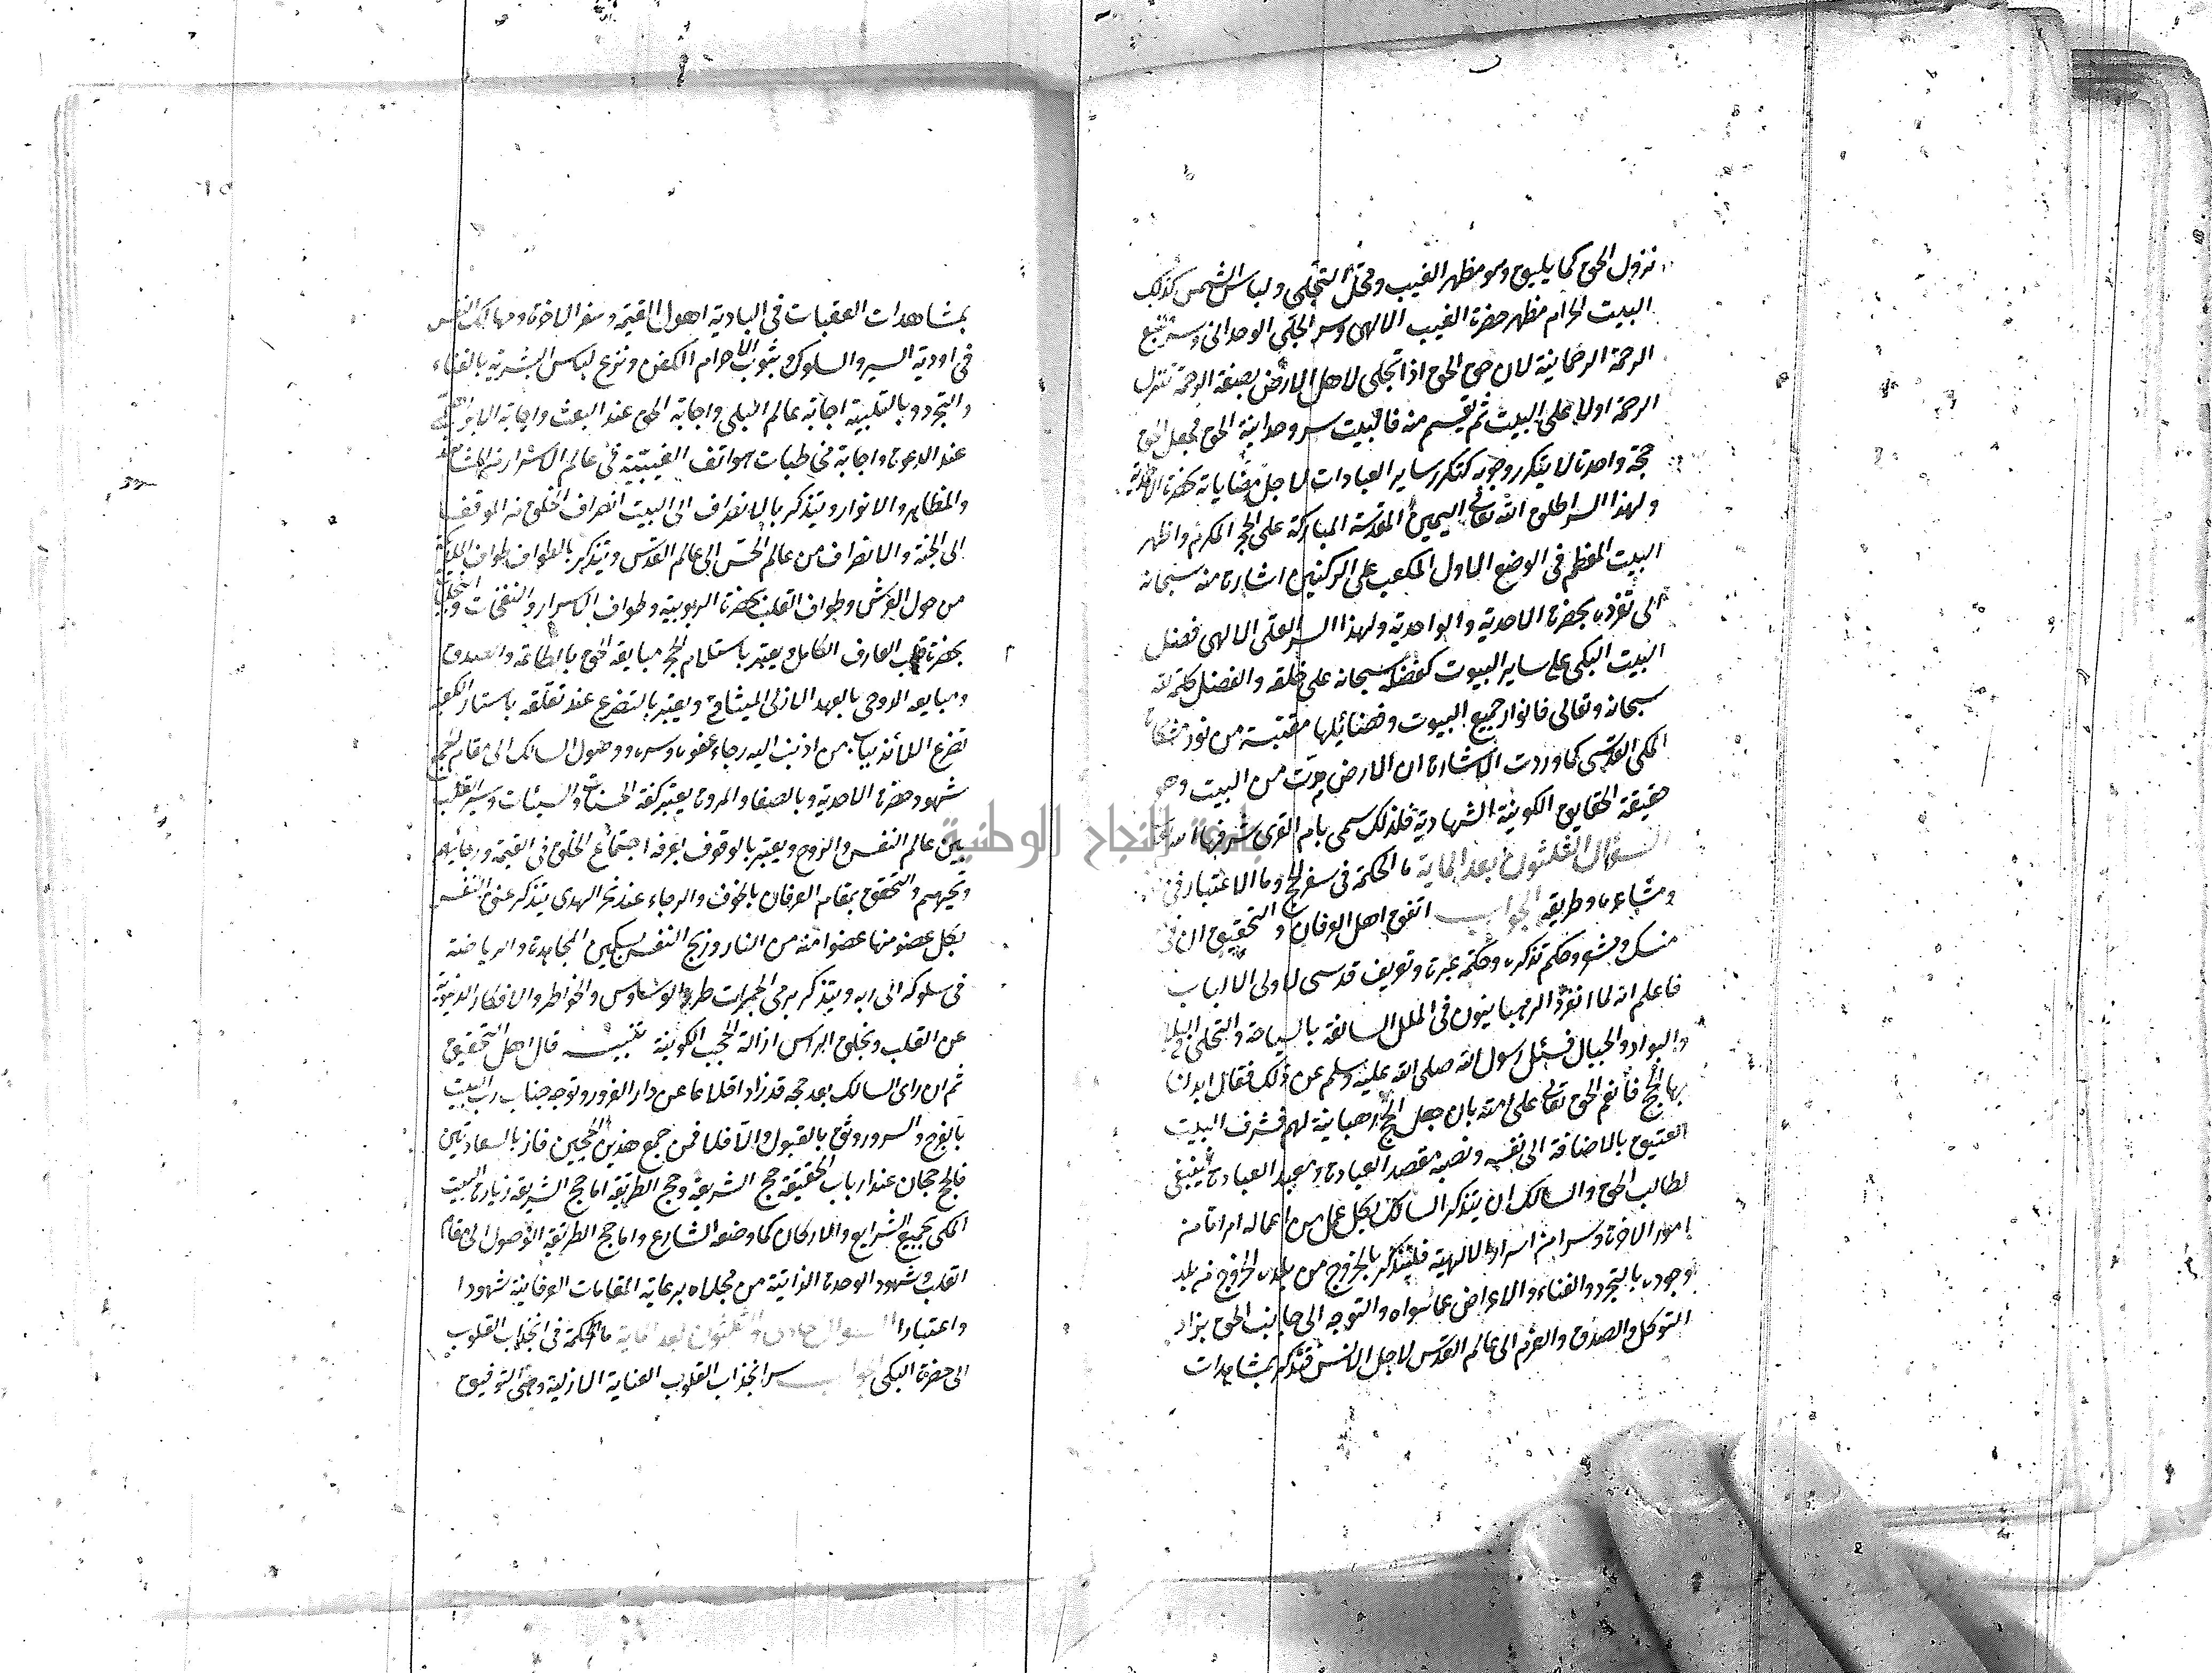 نزول الحق كما يليق وهو مظهر الغيب ومحل التجلي ولباس الشمس كذلك
البيت الحرام مظهر حضرة الغيب الالهى وسر التجلي الوحدانى وسر تتبع
الرحمة الرحمانية لان حق الحق اذا تجلى لاهل الارض بصفة الرحمة تنزل
الرحمة اولا على البيت ثم يقسم منه فالبيت سر وحدانية الحق فجعل الحق
حجة واحدة لا يتكرر وجوبه كتكرر ساير العبادات لاجل مضاياته بحضرة الاحدية
ولهذا السر اطلق الله تعالى اليمين المقدسة المباركة على الحجر المكرم واظهر
البيت المعظم فى الوضع الاول المكعب على الركنين اشارة منه سبحانه
الى تفرده بحضرة الاحدية والواحدية ولهذا السر العلى الالهى فضل
البيت البكى على ساير البيوت كفضله سبحانه على خلقه والفضل كله لله
سبحانه وتعالى فانوار جميع البيوت وفضائلها مقتبسة من نور مشكاة
المكى القدسى كما وردت الاشارة ان الارض مدت من البيت وهو
حقيقة الحقايق الكونية الشهادية فلذلك سمى بام القرى شرفها الله
السؤال الثلثون بعد الماية ما الحكمة فى سفر الحج وما الاعتبار فى
ومشاعره وطريقه الجواب اتفق اهل العرفان والتحقيق ان فى
منسك ومشعر وحكم تذكرة وحكمة عبرة وتعريف قدسى لاولى الالباب
فاعلم انه لما انفرد الرهبانيون فى الملل السالفة بالسياحة والتخلى
والبواد والجبال فسئل رسول الله صلى الله عليه وسلم عن ذلك فقال ابدلنا
بها الحج فانعم الحق تعالى على امته بان جعل الحج رهبانية لهم فشرف البيت
العتيق بالاضافة الى نفسه ونصبه مقصد العبادة ومعبد العبادة فينبغى
لطالب الحق والسالك ان يتذكر السالك بكل عمل من اعماله امرا من
امور الاخرة وسرا من اسرار الالهية فليتذكر بالخروج من بلده الخروج من بلد
وجوده بالتجرد والفناء والاعراض عما سواه والتوجه الى جانب الحق بزاد
التوكل والصدق والعزم الى عالم القدس لاجل الانس فتذكر بمشاهدات
بمشاهدات العقبات فى البادية اهوال القيمة وسفر الاخرة ومهالك النفس
فى اودية السير والسلوك وبثوب الاحرام الكفن ونزع لباس البشرية بالفناء
والتجرد وبالتلبية اجابة عالم البلى واجابة الحق عند البعث واجابة
عند الدعوة واجابة مخاطبات هواتف الغيبية فى عالم الاسرار
والمظاهر والانوار ويتذكر بالانصراف الى البيت انصراف الخلق من الموقف
الى الجنة والانصراف من عالم الحس الى عالم القدس ويتذكر بالطواف طواف الملائكة
من حول العرش وطواف القلب بحضرة الربوبية وطواف الاسرار والنفحات
بحضرة قلب العارف الكامل ويعتبر باستلام الحجر مبايعة الحق بالطاعة والصدق
ومبايعة الروحى بالعهد الازلى الميثاقى ويعتبر بالتضرع عند تعلقه باستار الكعبة
تضرع اللائذ بباب من اذنب اليه رجاء عفوه وسره ووصول السالك الى مقام الجمع
شهود حضرة الاحدية وبالصفا والمروة يعتبر كفة الحسنات والسيئات وسير القلب
بين عالم النفس والروح ويعتبر بالوقوف بعرفة اجتماع الخلق فى القيمة ورجائهم
وتحيرهم والتحقق بمقام العرفان بالخوف والرجاء عند نحر الهدى يتذكر عتق النفس
بكل عضو منها عضوا منه من النار وذبح النفس بسكين المجاهدة والرياضة
فى سلوكه الى ربه ويتذكر برمى الجمرات طرد الوساوس والخواطر والافكار الدنيوية
عن القلب وبحلق الراس ازالة الحجب الكونية تنبيه قال اهل التحقيق
ثم ان راى السالك بعد حجه قد زاد اقلاعا عن دار الغرور وتوجه جناب رب البيت
بالفرح والسرور وثق بالقبول والا فلا فمن جمع هذين الحجين فاز بالسعادتين
فالحج حجان عند ارباب الحقيقة حج الشريعة وحج الطريقة اما حج الشريعة زيارة البيت
المكى بجميع الشرايع والاركان كما وضعه الشارع واما حج الطريقة الوصول الى مقام
القلب وشهود الوحدة الذاتية من مجلاه برعاية المقامات العرفانية شهودا
واعتبارا السؤال حادى والثلثون بعد الماية ما الحكمة فى انجذاب القلوب
الى حضرة البكى الجواب سر انجذاب القلوب العناية الازلية وهى التوفيق
جامعة النجاح الوطنية